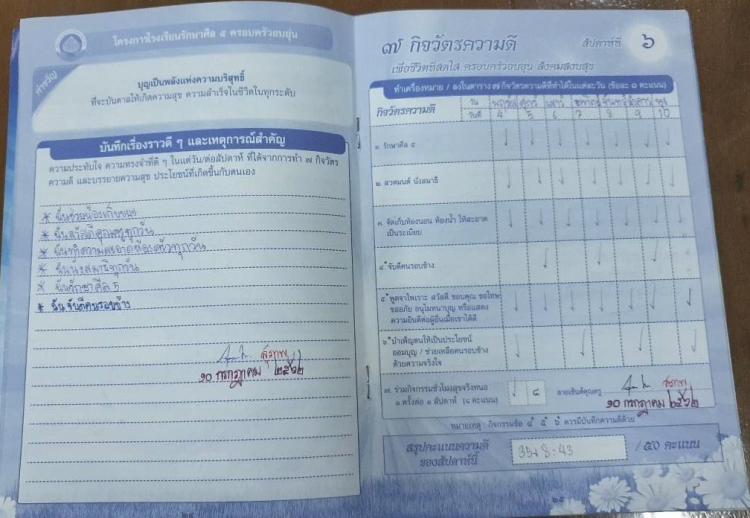 โครงการโรงเรียนรักษาศีล ๕ ครอบครัวอบอุ่น
คำขวัญ
บุญเป็นพลังแห่งความบริสุทธิ์
ที่จะบันดาลให้เกิดความสุข ความสำเร็จในชีวิตในทุกระดับ
บันทึกเรื่องราวดี ๆ และเหตุการณ์สำคัญ
ความประทับใจ ความทรงจำที่ดี ๆ ในแต่วัน/ต่อสัปดาห์ ที่ได้จากการทำ ๗ กิจวัตร
ความดี และบรรยายความสุข ประโยชน์ที่เกิดขึ้นกับตนเอง
* ฉันช่วยน้องเก็บขยะ
* ฉันสวัสดีคุณครูทุกวัน
* ฉันทำความสะอาดห้องครัวทุกวัน
* ฉันนั่งสมาธิทุกวัน
* ฉันรักษาศีล 5
* ฉันจับดีคนรอบข้าง
๑๐ กรกฎาคม ๒๕๖๒
๗ กิจวัตรความดี สัปดาห์ที่ ๖
เพื่อชีวิตที่สดใส ครอบครัวอบอุ่น สังคมสงบสุข
ทำเครื่องหมาย / ลงในตาราง ๗ กิจวัตรความดีที่ทำได้ในแต่ละวัน (ข้อละ ๑ คะแนน)
กิจวัตรความดี
วัน ศุกร์ เสาร์ อาทิตย์ จันทร์ อังคาร พุธ
วันที่ 4 5 6 7 8 9 10
๑. รักษาศีล ๕
๒. สวดมนต์ นั่งสมาธิ
๓. จัดเก็บห้องนอน ห้องน้ำ ให้สะอาด
เป็นระเบียบ
๔. จับดีคนรอบข้าง
๕. พูดจาไพเราะ สวัสดี ขอบคุณ ขอโทษ
ขออภัย อนุโมทนาบุญ หรือแสดง
ความยินดีต่อผู้อื่นเมื่อเขาได้ดี
๖. บำเพ็ญตนให้เป็นประโยชน์
ออมบุญ / ช่วยเหลือคนรอบข้าง
ด้วยความจริงใจ
๗. ร่วมกิจกรรมชั่วโมงสุขจริงหนอ
๑ ครั้งต่อ ๑ สัปดาห์ (๘ คะแนน)
๘
ลายเซ็นต์คุณครู
๑๐ กรกฎาคม ๒๕๖๒
หมายเหตุ : กิจกรรมข้อ ๔ ๕ ๖ ควรมีบันทึกความดีด้วย
สรุปคะแนนความดี
ของสัปดาห์นี้
35+8=43
/ ๕๐ คะแนน